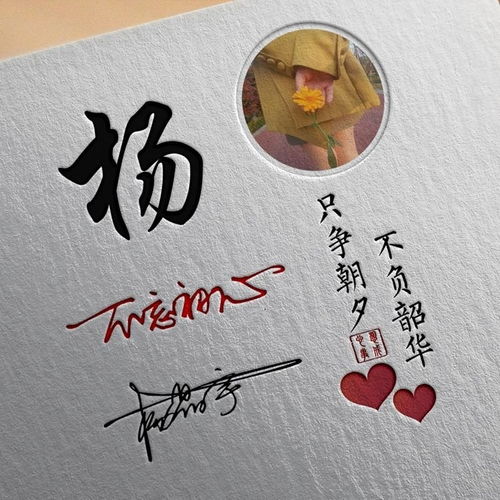 杨
不忘初心
只争朝夕
不负韶华